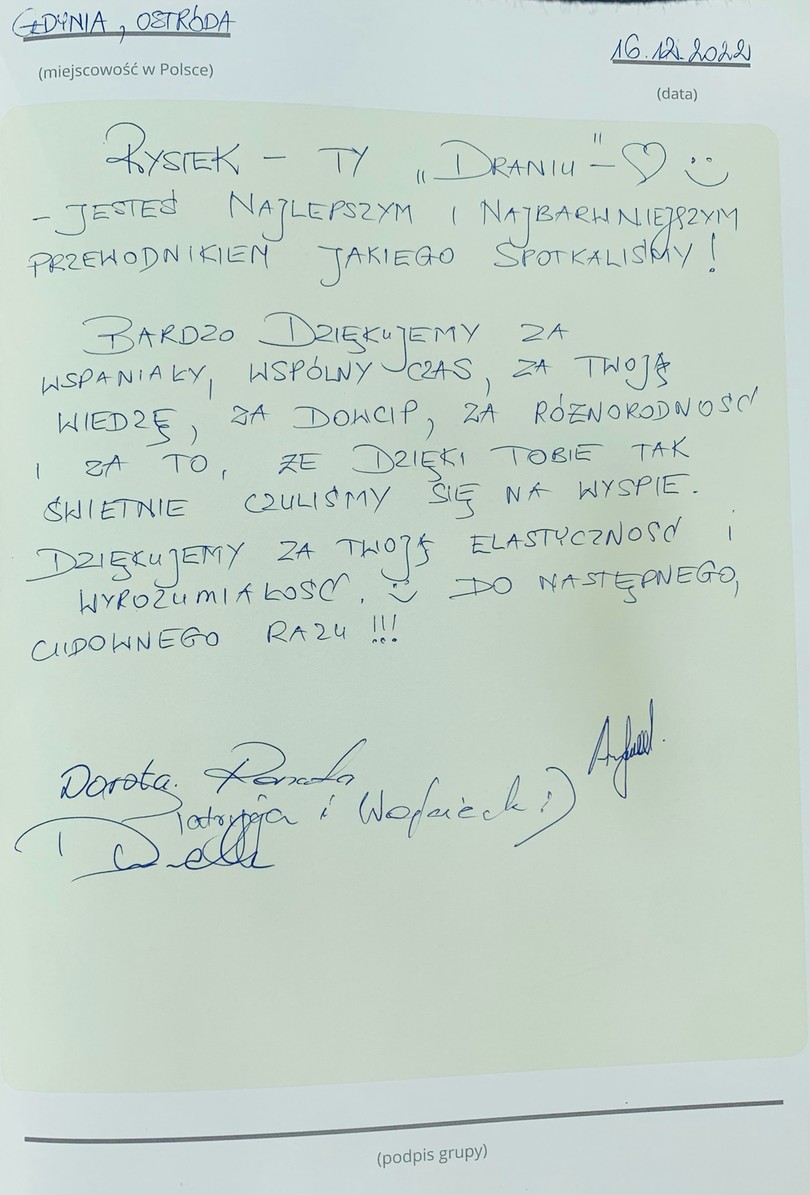 GDYNIA, OSTRÓDA
(miejscowość w Polsce)
16.12.2022
(data)
RYSIEK – TY „DRANIU" – ♡ :)
– JESTEŚ NAJLEPSZYM I NAJBARWNIEJSZYM
PRZEWODNIKIEM JAKIEGO SPOTKALIŚMY!
BARDZO DZIĘKUJEMY ZA
WSPANIAŁY, WSPÓLNY CZAS, ZA TWOJĄ
WIEDZĘ, ZA DOWCIP, ZA RÓŻNORODNOŚĆ
I ZA TO, ŻE DZIĘKI TOBIE TAK
ŚWIETNIE CZULIŚMY SIĘ NA WYSPIE.
DZIĘKUJEMY ZA TWOJĄ ELASTYCZNOŚĆ i
WYROZUMIAŁOŚĆ. :) DO NASTĘPNEGO,
CUDOWNEGO RAZU !!!
Dorota. Renata
Patrycja i Wojciech :)
(podpis grupy)